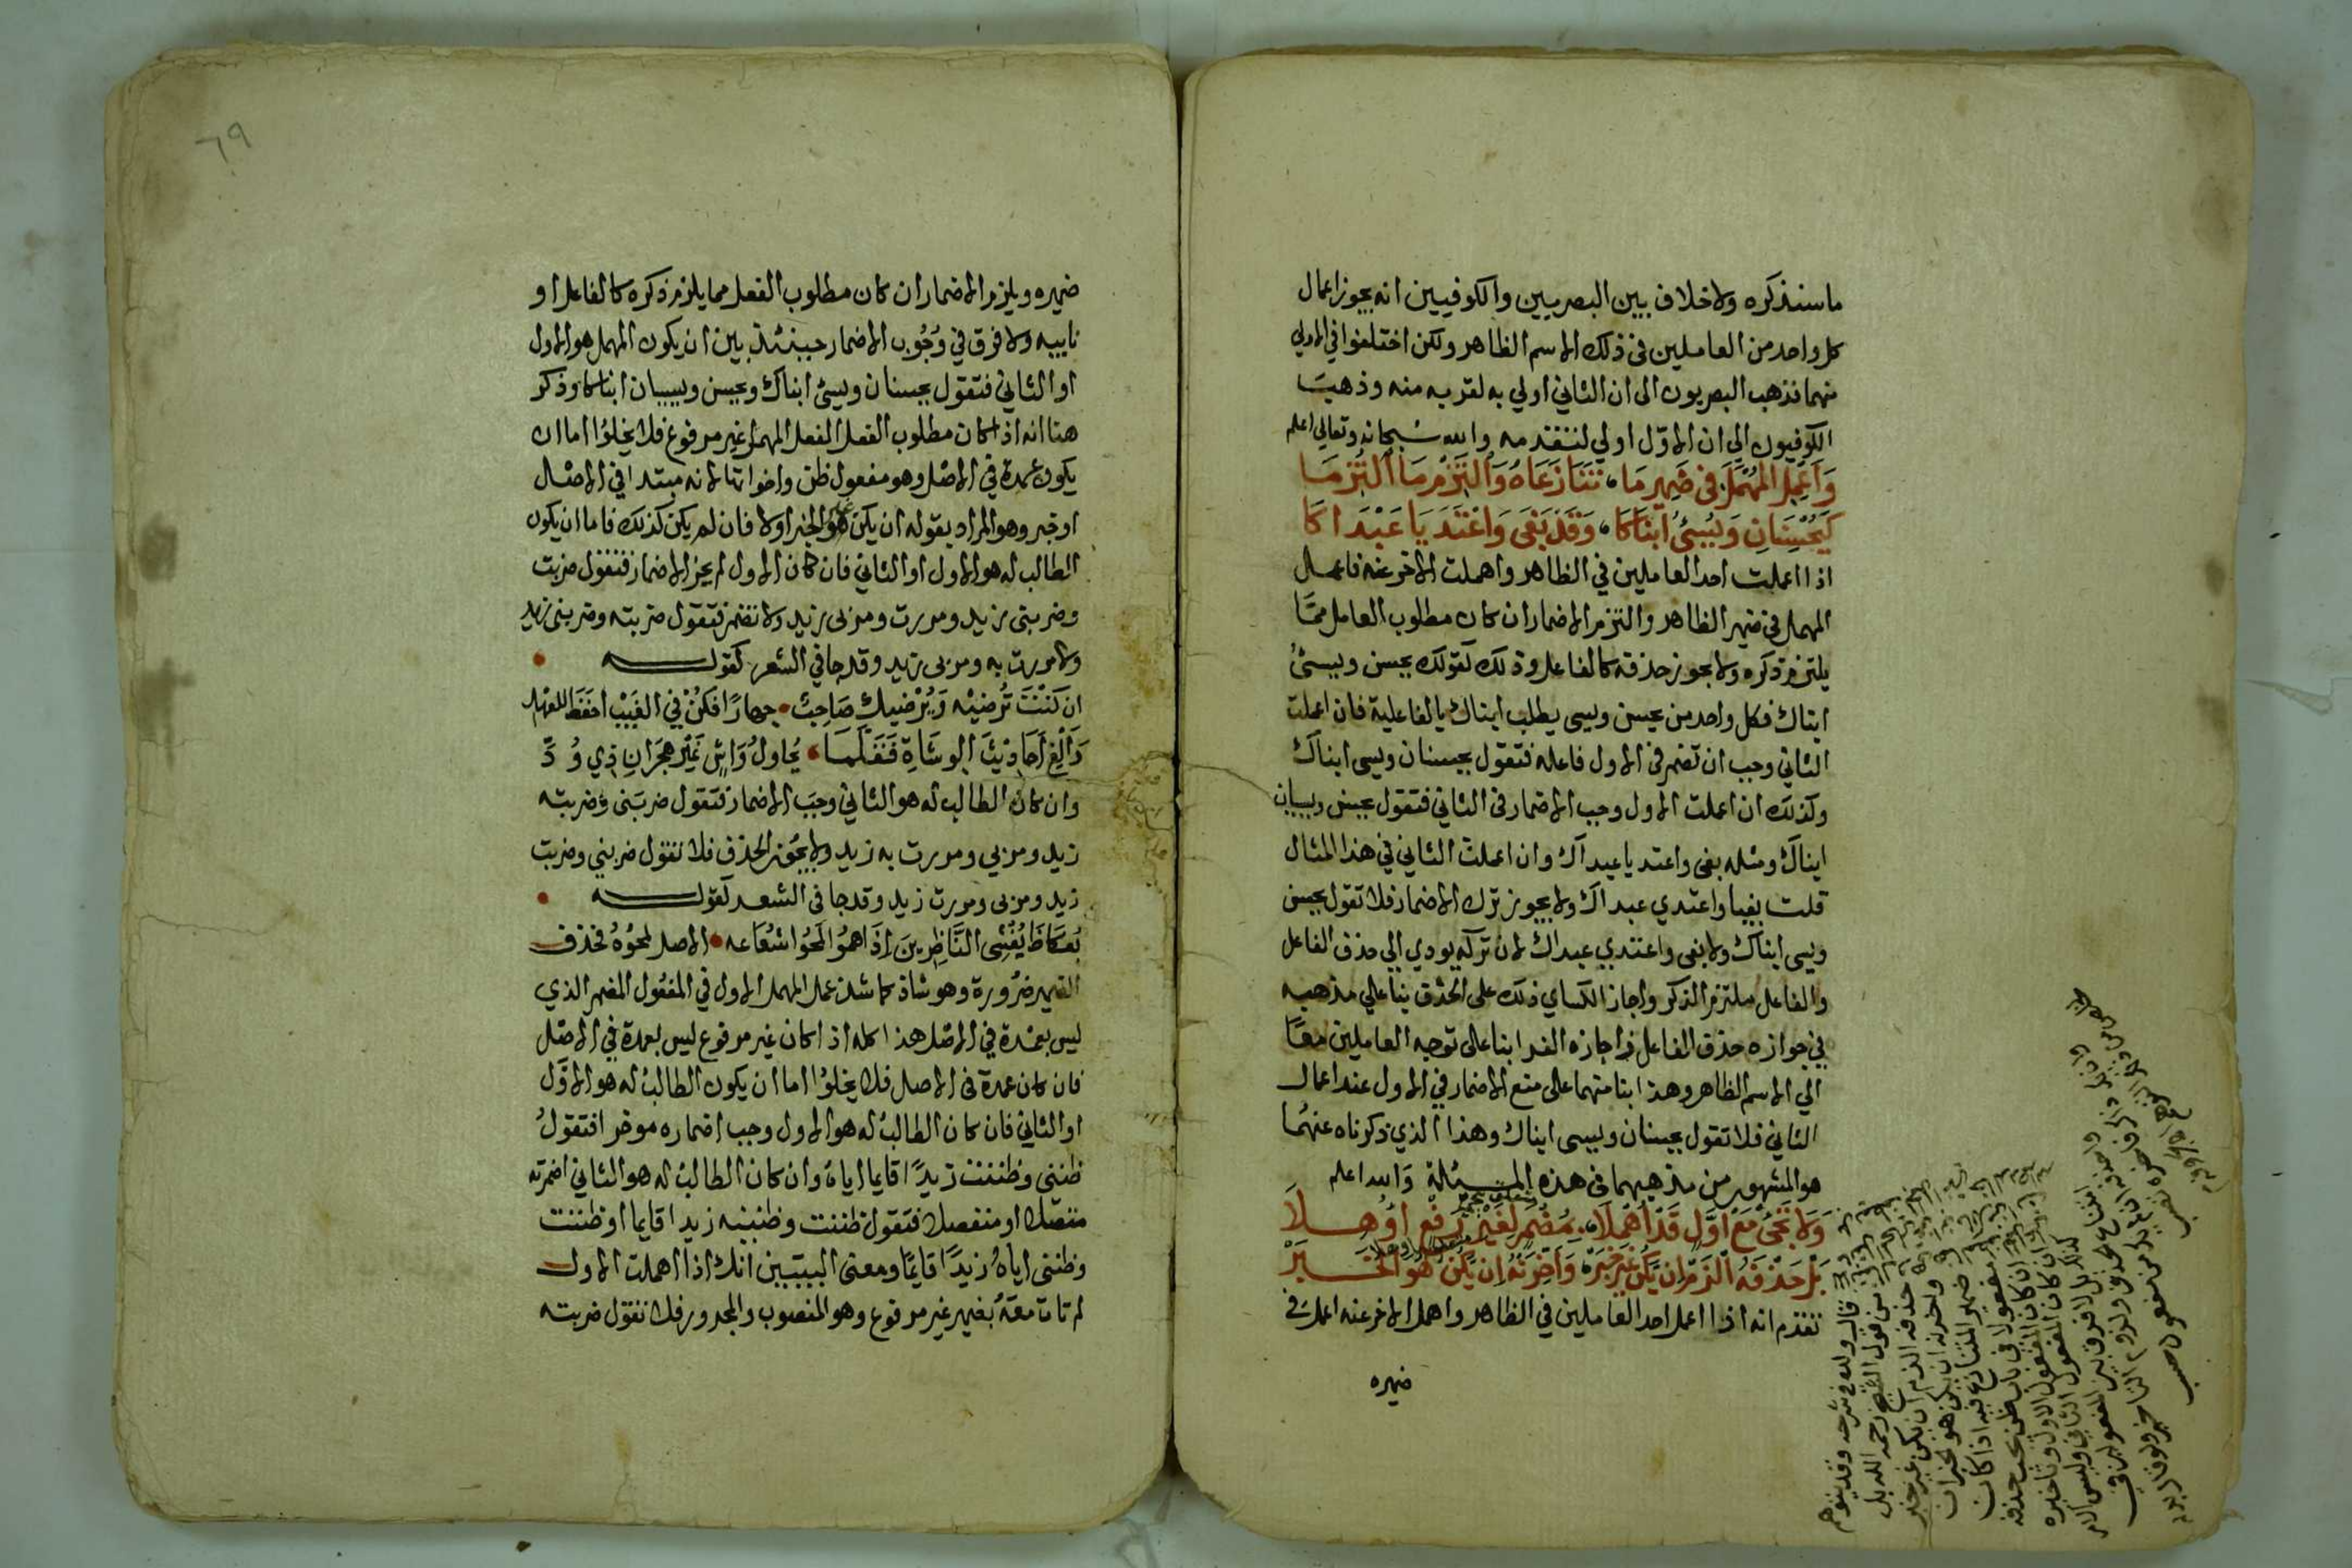 ما سنذكره ولا خلاف بين البصريين والكوفيين انه يجوز اعمال
كل واحد من العاملين في ذلك الاسم الظاهر ولكن اختلفوا في الاولي
منهما فذهب البصريون الى ان الثاني اولي به لقربه منه وذهبَ
الكوفيون الي ان الاوّل اولي لتقدمه والله سبحانه وتعالي اعلم
وَاَعْمِلِ المُهْمَلَ في ضَمِيرِ مَا، تَنَازَعَاهُ وَالْتَزِمْ مَا الْتُزِمَا
كَيُحْسِنَانِ وَيُسِيْءُ ابْنَاكَا، وَقَدْ بَغَى وَاعْتَدَيَا عَبْدَاكَا
اذا اعملت احد العاملين في الظاهر واهملت الاخر عنه فاعمل
المهمل في ضمير الظاهر والتزم الاضمار ان كان مطلوب العامل ممَّا
يلتزم ذكره ولا يجوز حذفه كالفاعل وذلك كقولك يحسن ويسئُ
ابناك فكل واحد من يحسن ويسى يطلب ابناك بالفاعلية فان اعملت
الثاني وجب ان تضمر في الاول فاعله فتقول يحسنان ويسى ابناك
وكذلك ان اعملت الاول وجب الاضمار في الثاني فتقول يحسن ويسيان
ابناك ومثله بغى واعتديا عبداك وان اعملت الثاني في هذا المثال
قلت بغيا واعتدي عبداك ولا يجوز ترك الاضمار فلا تقول يحسن
ويسى ابناك ولا بغى واعتدي عبداك لان تركه يودي الي حذف الفاعل
والفاعل ملتزم الذكر واجاز الكساي ذلك على الحذف بنا علي مذهبه
في جوازه حذف الفاعل واجازه الفرا بنا على توجه العاملين معًا
الي الاسم الظاهر وهذا بنا منهما على منع الاضمار في الاول عند اعمال
الثاني فلا تقول يحسنان ويسى ابناك وهذا الذي ذكرناه عنهُما
هو المشهور من مذهبهما في هذه المسئلة وَالله اعلم
وَلَا تَجِئْ مَعْ اَوَّلٍ قَدْ اُهْمِلَا، بِمُضْمَرٍ لِغَيْرِ رَفْعٍ اُوهِلَا
بَلْ حَذْفَهُ الْزَمْ اِنْ يَكُنْ غَيْرَ خَبَرْ، وَاَخِّرَنْهُ اِنْ يَكُنْ هُوَ الخَبَرْ
تقدم انه اذا اعمل احد العاملين في الظاهر واهمل الاخر عنه اعمل في
ضميره
٦٩
ضميره ويلزم الاضمار ان كان مطلوب الفعل مما يلزم ذكره كالفاعل او
نايبه ولا فرق في وُجُوب الاضمار حينئذ بين ان يكون المهمل هو الاول
او الثاني فتقول يحسنان ويسئ ابناك ويحسن ويسيان ابناكا وذكر
هنا انه اذا كان مطلوب الفعل الفعل المهمل غير مرفوع فلا يخلوُا اما ان
يكون عمدة في الاصل وهو مفعول ظن واخواتها لانه مبتدا في الاصل
او خبر وهو المراد بقوله ان يكن هو الخبر اولا فان لم يكن كذلك فاما ان يكون
الطالب له هو الاول او الثاني فان كان الاول لم يجز الاضمار فتقول ضربت
وضربني زيد ومررت ومر بي زيد ولا تضمر فتقول ضربته وضربني زيد
ولا مررت به ومر بي زيد وقد جا في الشعر كقوله
ان كَنْتَ تُرضِيْه وَيُرْضِيكَ صَاحِبٌ جهارًا فكُنْ فِي الغَيْبِ احفَظَ للعَهْدِ
وَاَلْغِ اَحَادِيْثَ الوشَاةِ فَقَلَّمَا يُحاولُ وَاشٍ غَيْرَ هِجْرَانِ ذِي وُدَّ
وان كان الطالب له هو الثاني وجبَ الاضمار فتقول ضربَني وضربته
زيد ومر بي ومررت به زيد ولا يجوُز الحذف فلا تقول ضربني وضربت
زيد ومر بى ومررت زيد وقد جا في الشعر كقوله
بُعكاظَ يُعْشِى النَّاظِرِينَ اِذَا همُو لَمَحُوا شُعَاعه الاصل لمحُوُه فحذف
الضمير ضرُورة وهو شاذ كما شذ عمل المهمل الاول في المفعُول المضمر الذي
ليس بعمْدة في الاصْل هذا كله اذا كان غير مرفوع ليس بعمدة في الاصْل
فان كان عمدة فى الاصل فلا يخلوُا اما ان يكون الطالبُ له هو الاوَّل
او الثاني فان كان الطالبُ له هو الاول وجب اضماره موخرا فتقولُ
ظنني وظننت زيدًا قايما اياه وان كان الطالبُ له هو الثاني اضمرته
متصلا او منفصلا فتقول ظننت وظننيه زيدا قايما او ظننت
وظننى اياهُ زيدًا قايمًا ومعنى البيتين انك اذا اهملت الاول
لم تات معَهُ بضمير غير مرفوع وهو المنصوب والمجرور فلا تقول ضربته